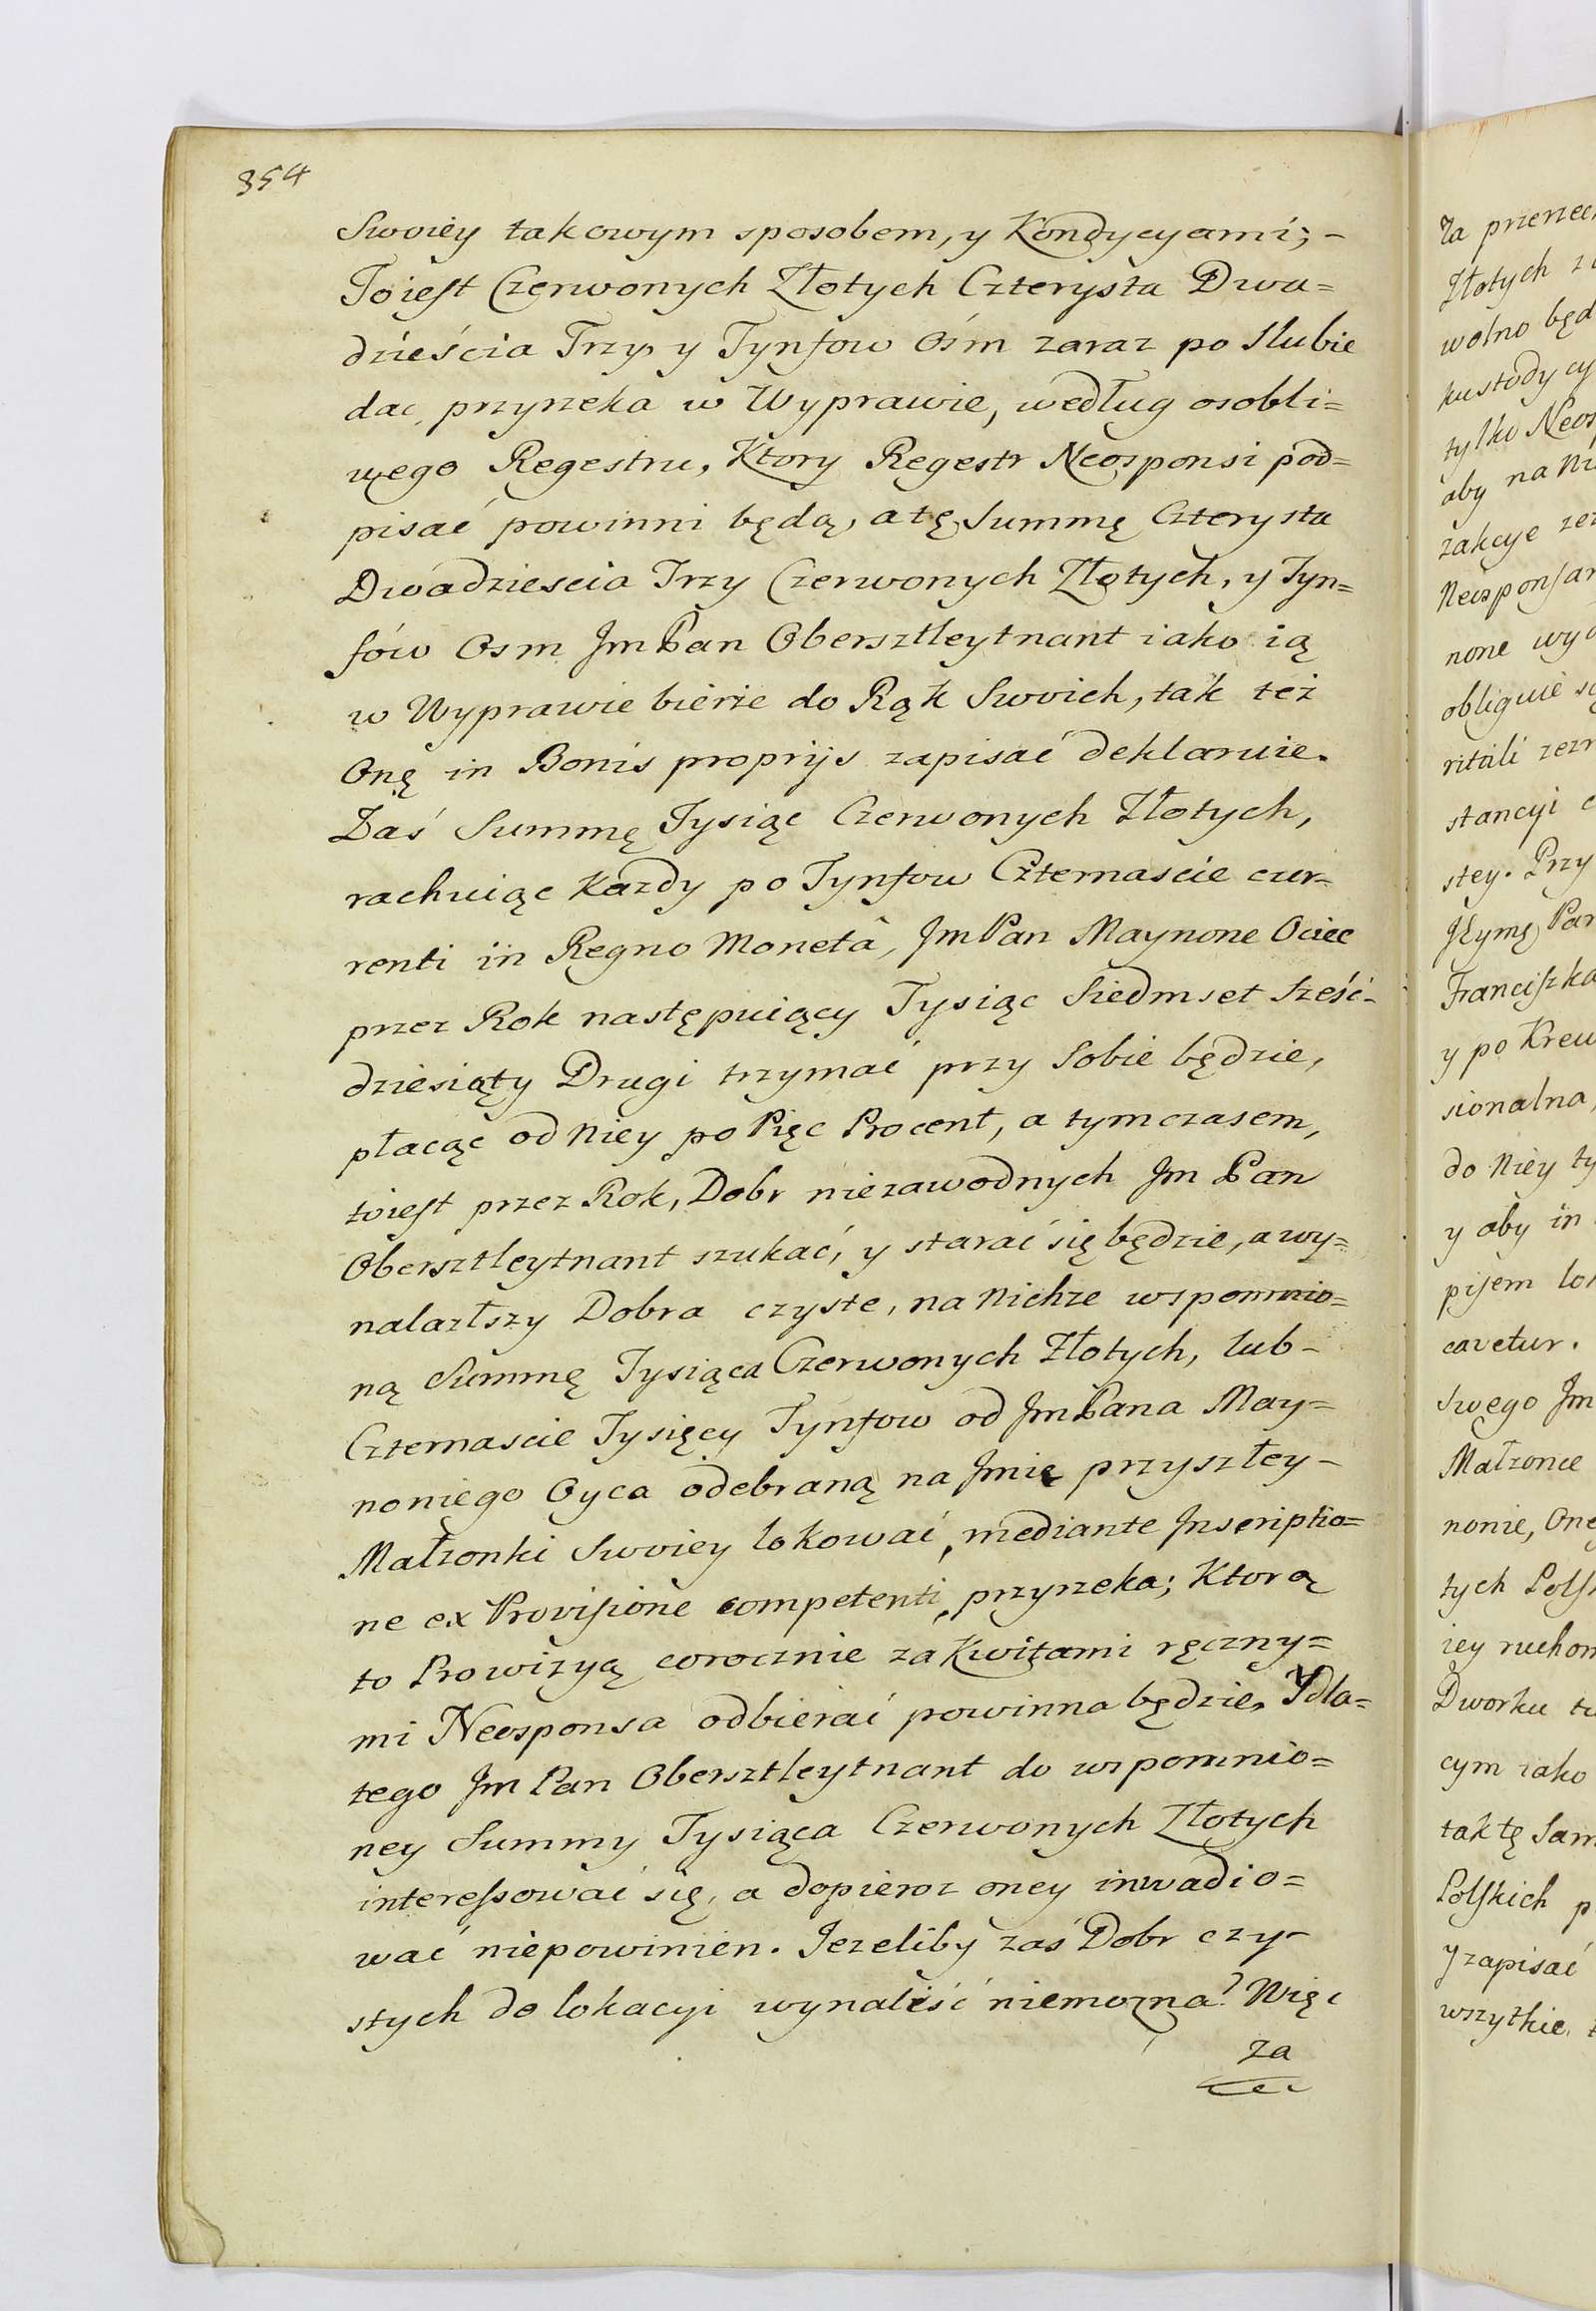 354
Swoiey takowym sposobem, y Kondycyami; -
Toiest Czerwonych Złotych Czterysta Dwa=
dzieścia Trzy y Tynfow Ośm zaraz po Slubie
dac, przyrzeka w Wyprawie, według osobli=
wego Regestru, Ktory Regestr Neosponsi pod=
pisać powinni będą, a tę Summę Czterysta
Dwadziescia Trzy Czerwonych Złotych, y Tyn=
fów Osm Jm Pan Obersztleytnant iako ią
w Wyprawie bierze do Rąk Swoich, tak też
Onę in Bonis proprijs zapisać deklaruie.
Zaś Summę Tysiąc Czerwonych Złotych,
rachuiąc Kazdy po Tynfow Czternascie cur=
renti in Regno Monetâ, Jm Pan Maynone Ociec
przez Rok następuiący Tysiąc Siedmset Sześć-
dziesiąty Drugi trzymać przy Sobie będzie,
płacąc od Niey po Pięc Procent, a tymczasem,
toiest przez Rok, Dobr niezawodnych Jm Pan
Obersztleytnant szukać, y starać się będzie, a wy=
nalazłszy Dobra czyste, na Nichże wspomnio=
ną Summę Tysiąca Czerwonych Złotych, lub-
Czternascie Tysięcy Tynfow od Jm Pana May=
noniego Oyca odebraną na Jmię przyszłey-
Małzonki Swoiey lokować, mediante Inscriptio=
ne ex Provisione competenti, przyrzeka; Ktorą
to Prowizyą corocznie za Kwitami ręczny=
mi Neosponsa odbierać powinna będzie, Y dla=
tego Jm Pan Obersztleytnant do wspomnio=
ney Summy Tysiąca Czerwonych Złotych
interessować się, a dopieroz oney inwadio=
wać niepowinien. Jezeliby zaś Dobr czy-
stych do lokacyi wynaleść niemozna? Więc
za
Za przerzec
Złotych
wolno będ
kustodycy
tylko Neos
aby na Ni
zakcye zez
Neosponsar
none wyd
obliguie
ritali zezn
stancyi
stey. Przy
JEymę Pan
Franciszka
y po Krew
sionalna,
do Niey ty
y aby in
pisem lok
cavetur.
Swego Jm
Małzonce
nonie, One
tych Pols
iey ruchom
Dworku tu
cym iako
tak tę Sam
Polskich p
J zapisać
wszytkie